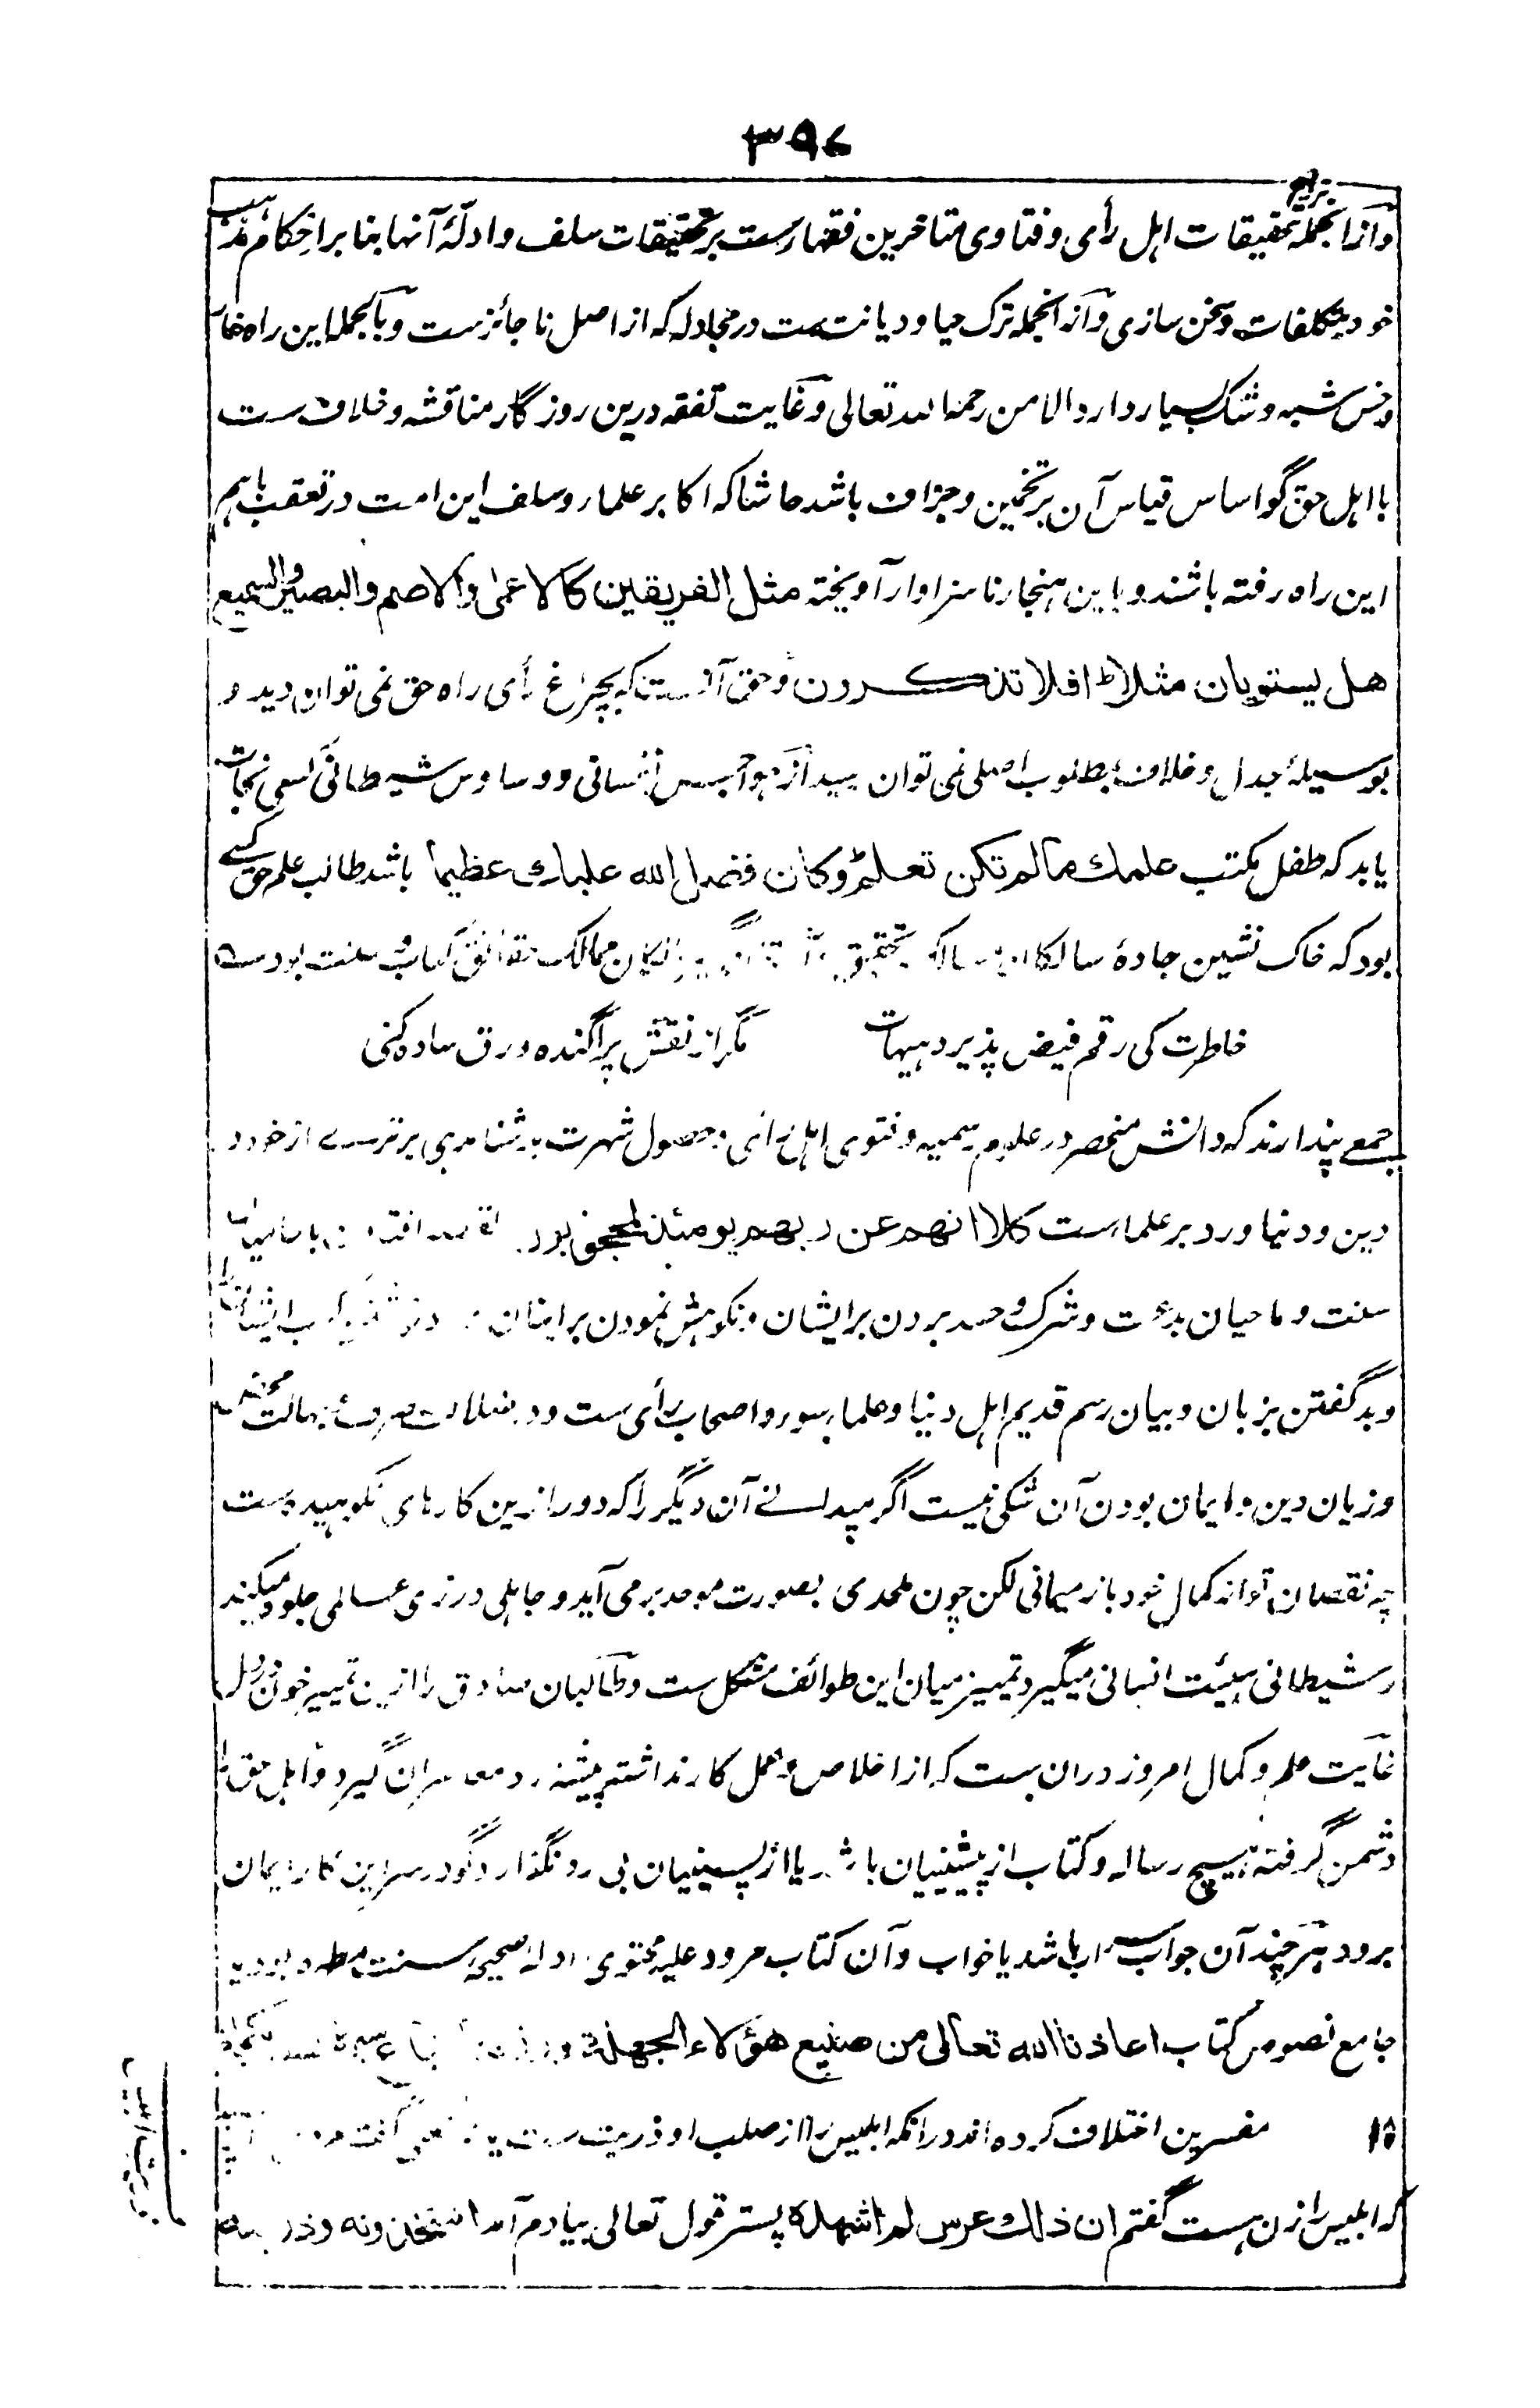 ۳۹۷
وازانجمله ترجیح تحقیقات اهل رأی و فتاوی متاخرین فقهارست بر تحقیقات سلف و ادلهٔ آنها بنا بر احکام مذهب
خود بتکلفات و سخن سازی و ازانجمله ترک حیا و دیانت ست در مجادله که از اصل ناجائزست و بالجمله این راه خار
و خس شبه و شک بسیار دارد الا من رحمه الله تعالی و غایت تفقه درین روزگار مناقشه و خلاف ست
با اهل حق گو اساس قیاس آن بر تخمین و جزاف باشد حاشا که اکابر علماء و سلف این امت در تعقب باهم
این راه رفته باشند و باین هنجار ناسزاوار آویخته مثل الفریقین کالاعمی والاصم والبصیر والسمیع
هل یستویان مثلا افلا تذکرون و حق آنست که بچراغ رأی راه حق نمی توان دید و
بوسیلهٔ جدال و خلاف بمطلوب اصلی نمی توان رسید از هواجس نفسانی و وساوس شیطانی کسی نجات
یابد که طفل مکتب علمك مالم تکن تعلم وکان فضل الله علیك عظیما باشد طالب علم حق کسے
بود که خاک نشین جادهٔ سالکان مسالک تحقیق ممالک حقائق کتاب و سنت بود
خاطرت کی رقم فیض پذیرد هیهات مگر از نقش پراگنده ورق ساده کنی
جمعے پندارند که دانش منحصر در علوم رسمیه و فتوی اهل رأی و حصول شهرت بدشنام دهی برترے از خود در
دین و دنیا و رد بر علماست کلا انهم عن ربهم یومئذ لمحجوبون
سنت و ماحیان بدعت و شرک و حسد بردن بر ایشان و نکوهش نمودن بر اینان
و بد گفتن بزبان و بیان رسم قدیم اهل دنیا و علماء سوء و اصحاب رأی ست و در ضلالت صرف و جهالت محض
و زیان دین و ایمان بودن آن شکی نیست اگر میدانے آن دیگر را که دور ازین کارهای نکوهیده ست
چه نقصان تو از کمال خود باز میمانی لکن چون ملحدی بصورت موحد برمی آید و جاهلی در زی عالمی جلوه میکند
و شیطانی هیئت انسانی میگیرد تمییز میان این طوائف مشکل ست و طالبان صادق را ازین تمییز خون در دل
غایت علم و کمال امروز دران ست که از اخلاص و عمل کار نداشته پیشهٔ رد معاصران گیرد و اهل حق را
دشمن گرفته هیچ رساله و کتاب از پیشینیان باشد یا از پسینیان بی رد نگذارد گو در سر این کار ایمان
برود هر چند آن جواب سراب باشد یا خواب و آن کتاب مردود علیه محتوی ادلهٔ صحیحهٔ سنت مطهره بود یا
جامع نصوص کتاب اعاذنا الله تعالی من صنیع هؤلاء الجهلة
۱۵ مفسرین اختلاف کرده اند در انکه ابلیس را از صلب او ذریت ست یا نه شعبی گفت
که ابلیس را زن هست گفتم ان ذلك عرس لم اشهده پستر قول تعالی بیادم آمد افتتخذونه وذریته
ذریت ابلیس